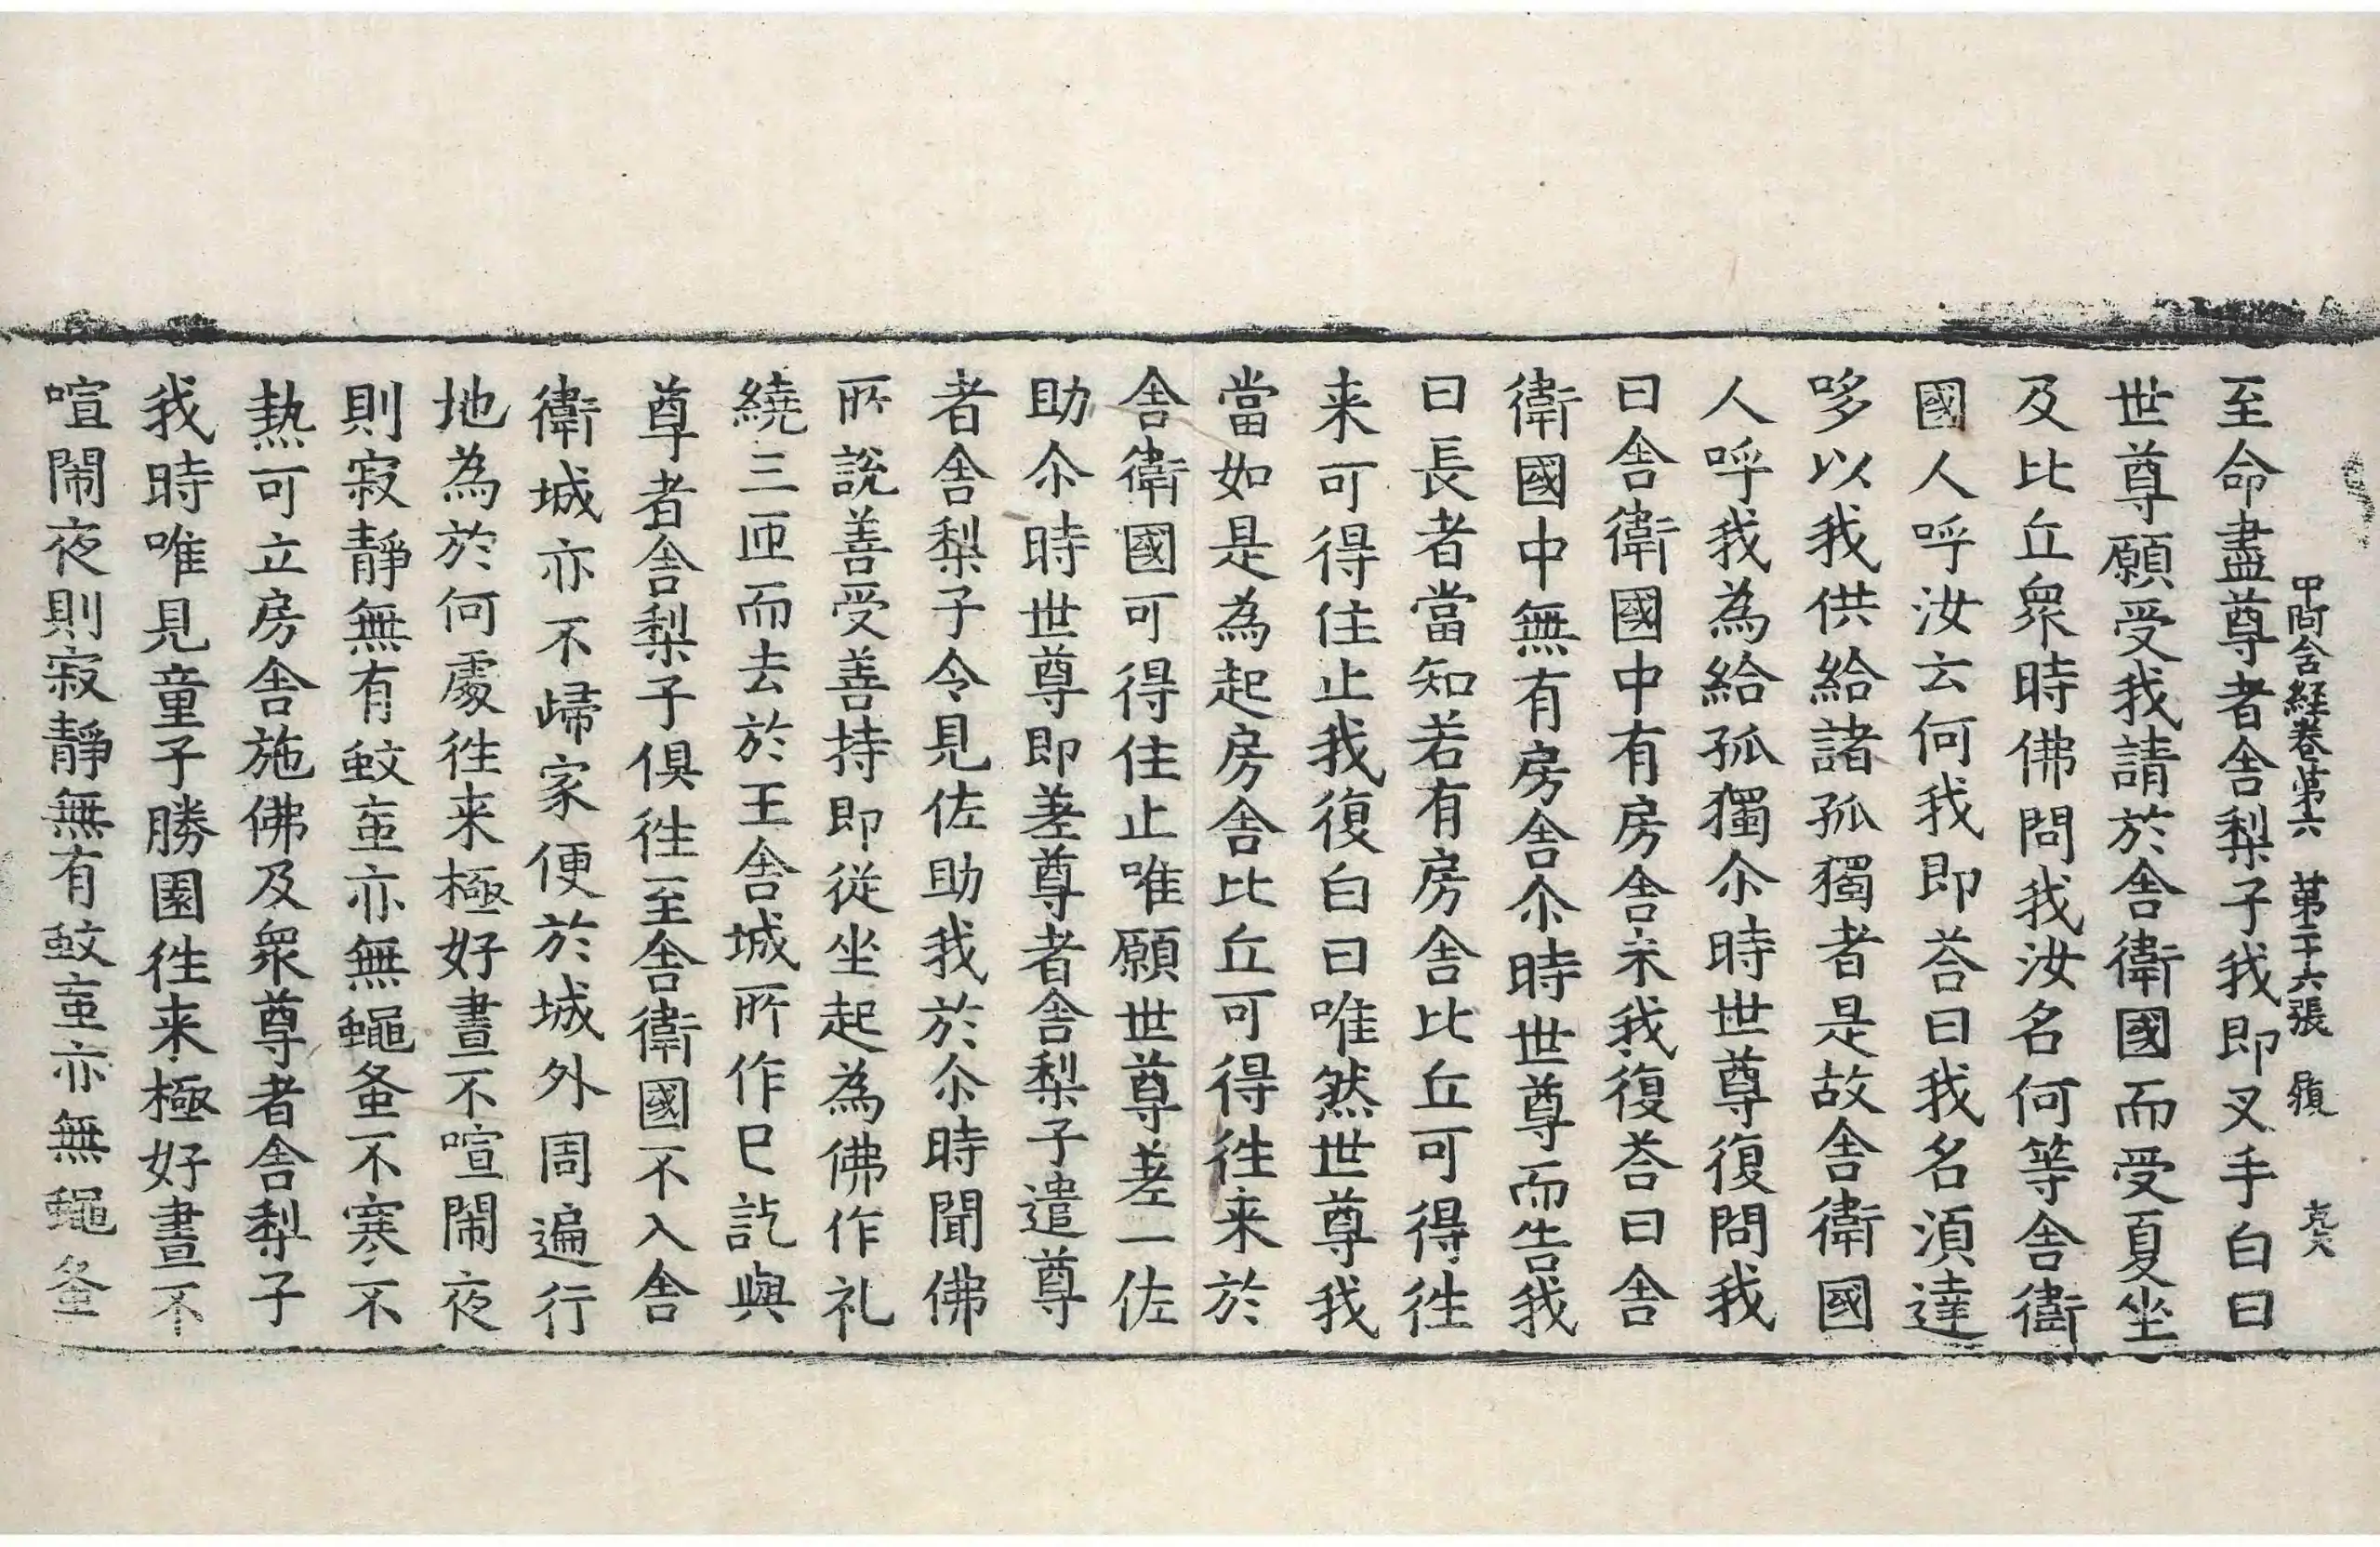 中阿含経卷第六 第二十六張
至命盡尊者舍梨子我即叉手白曰
世尊願受我請於舍衛國而受夏坐
及比丘衆時佛問我汝名何等舍衛
國人呼汝云何我即荅曰我名湏達
哆以我供給諸孤獨者是故舍衛國
人呼我為給孤獨尒時世尊復問我
曰舍衛國中有房舍未我復荅曰舍
衛國中無有房舍尒時世尊而告我
曰長者當知若有房舍比丘可得徃
来可得住止我復白曰唯然世尊我
當如是為起房舍比丘可得徃来於
舍衛國可得住止唯願世尊差一佐
助尒時世尊即差尊者舍梨子遣尊
者舍梨子令見佐助我於尒時聞佛
所說善受善持即從坐起為佛作礼
繞三匝而去於王舍城所作已訖與
尊者舍梨子俱徃至舍衛國不入舍
衛城亦不歸家便於城外周遍行
地為於何處徃来極好晝不喧閙夜
則寂靜無有蚊䖟亦無蠅蚤不寒不
熱可立房舍施佛及衆尊者舍梨子
我時唯見童子勝園徃来極好晝不
喧閙夜則寂靜無有蚊䖟亦無蠅蚤